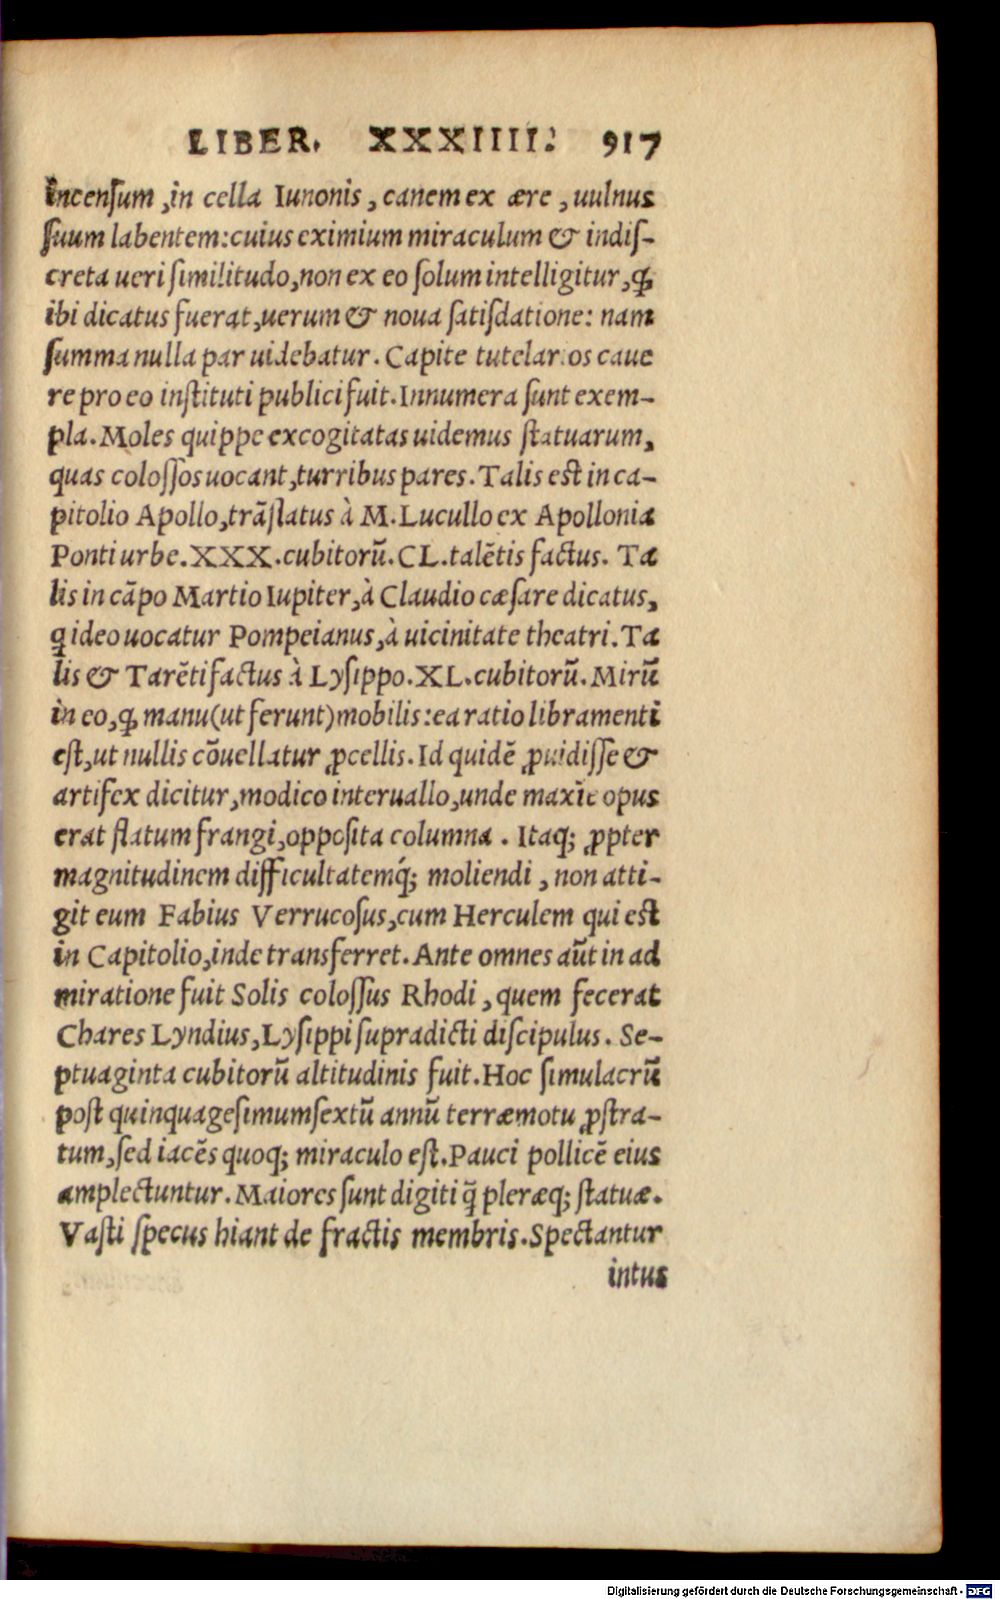 LIBER. XXXIIII. 917
incensum, in cella Iunonis, canem ex ære, uulnus
suum labentem: cuius eximium miraculum & indis-
creta ueri similitudo, non ex eo solum intelligitur, ꝙ
ibi dicatus fuerat, uerum & noua satisdatione: nam
summa nulla par uidebatur. Capite tutelarios caue
re pro eo instituti publici fuit. Innumera sunt exem-
pla. Moles quippe excogitatas uidemus statuarum,
quas colossos uocant, turribus pares. Talis est in ca-
pitolio Apollo, trãslatus à M. Lucullo ex Apollonia
Ponti urbe. XXX. cubitorũ. CL. talẽtis factus. Ta
lis in cãpo Martio Iupiter, à Claudio cæsare dicatus,
ꝗ ideo uocatur Pompeianus, à uicinitate theatri. Ta
lis & Tarẽti factus à Lysippo. XL. cubitorũ. Mirũ
in eo, ꝙ manu (ut ferunt) mobilis: ea ratio libramenti
est, ut nullis cõuellatur ꝓcellis. Id quidẽ ꝓuidisse &
artifex dicitur, modico interuallo, unde maxĩe opus
erat flatum frangi, opposita columna. Itaq; ꝓpter
magnitudinem difficultatemq́; moliendi, non atti-
git eum Fabius Verrucosus, cum Herculem qui est
in Capitolio, inde transferret. Ante omnes aũt in ad
miratione fuit Solis colossus Rhodi, quem fecerat
Chares Lyndius, Lysippi supradicti discipulus. Se-
ptuaginta cubitorũ altitudinis fuit. Hoc simulacrũ
post quinquagesimum sextũ annũ terræmotu ꝓstra-
tum, sed iacẽs quoq; miraculo est. Pauci pollicẽ eius
amplectuntur. Maiores sunt digiti q̃ pleræq; statuæ.
Vasti specus hiant de fractis membris. Spectantur
intus
Digitalisierung gefördert durch die Deutsche Forschungsgemeinschaft - DFG